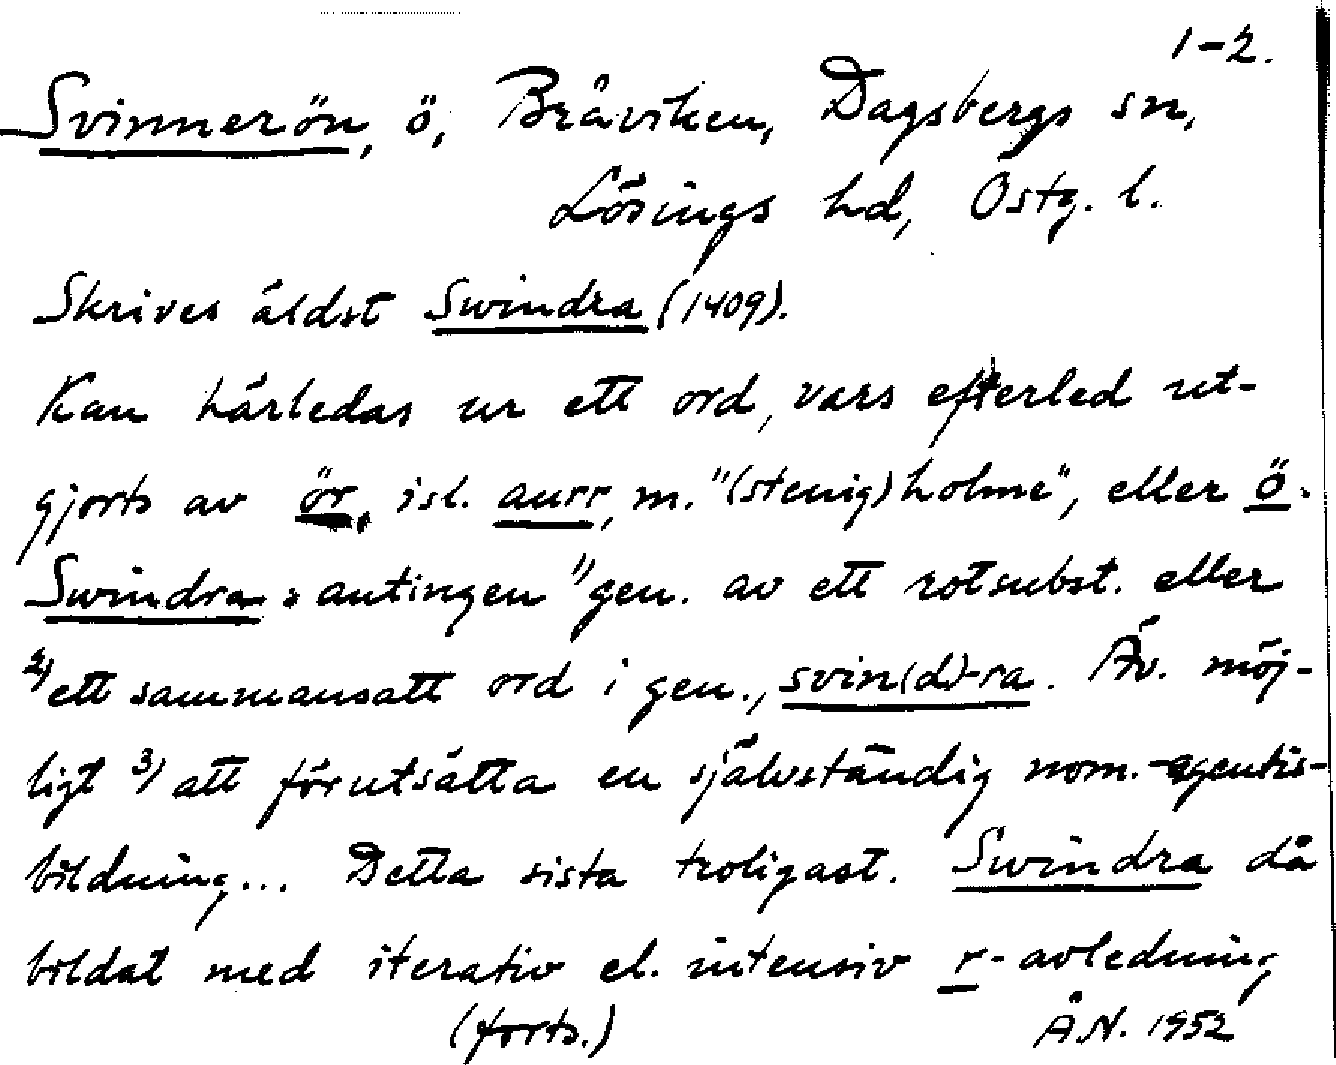 1-2.
Svinnerön, ö, Bråviken, Dagsbergs sn,
Lösings hd, Östg. l.
Skrives äldst Swindra (1409).
Kan härledas ur ett ord, vars efterled ut-
gjorts av ör, isl. aurr, m. "(stenig) holme", eller ö.
Swindra : antingen 1) gen. av ett rotsubst. eller
2) ett sammansatt ord i gen., svin(d)-ra. Äv. möj-
ligt 3) att förutsätta en självständig nom.-agentis-
bildning... Detta sista troligast. Swindra då
bildat med iterativ el. intensiv r-avledning
(forts.) Å.N. 1952